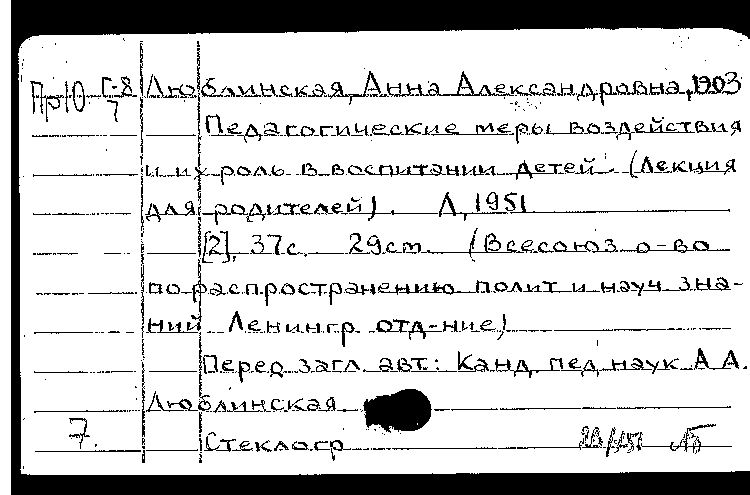 Пр10 Г-8/7 Люблинская, Анна Александровна, 1903
Педагогические меры воздействия
и их роль в воспитании детей. (Лекция
для родителей). Л, 1951
[2], 37с. 29см. (Всесоюз о-во
по распространению полит и науч зна-
ний Ленингр отд-ние)
Перед загл. авт.: Канд. пед. наук А А.
Люблинская
7. Стеклогр